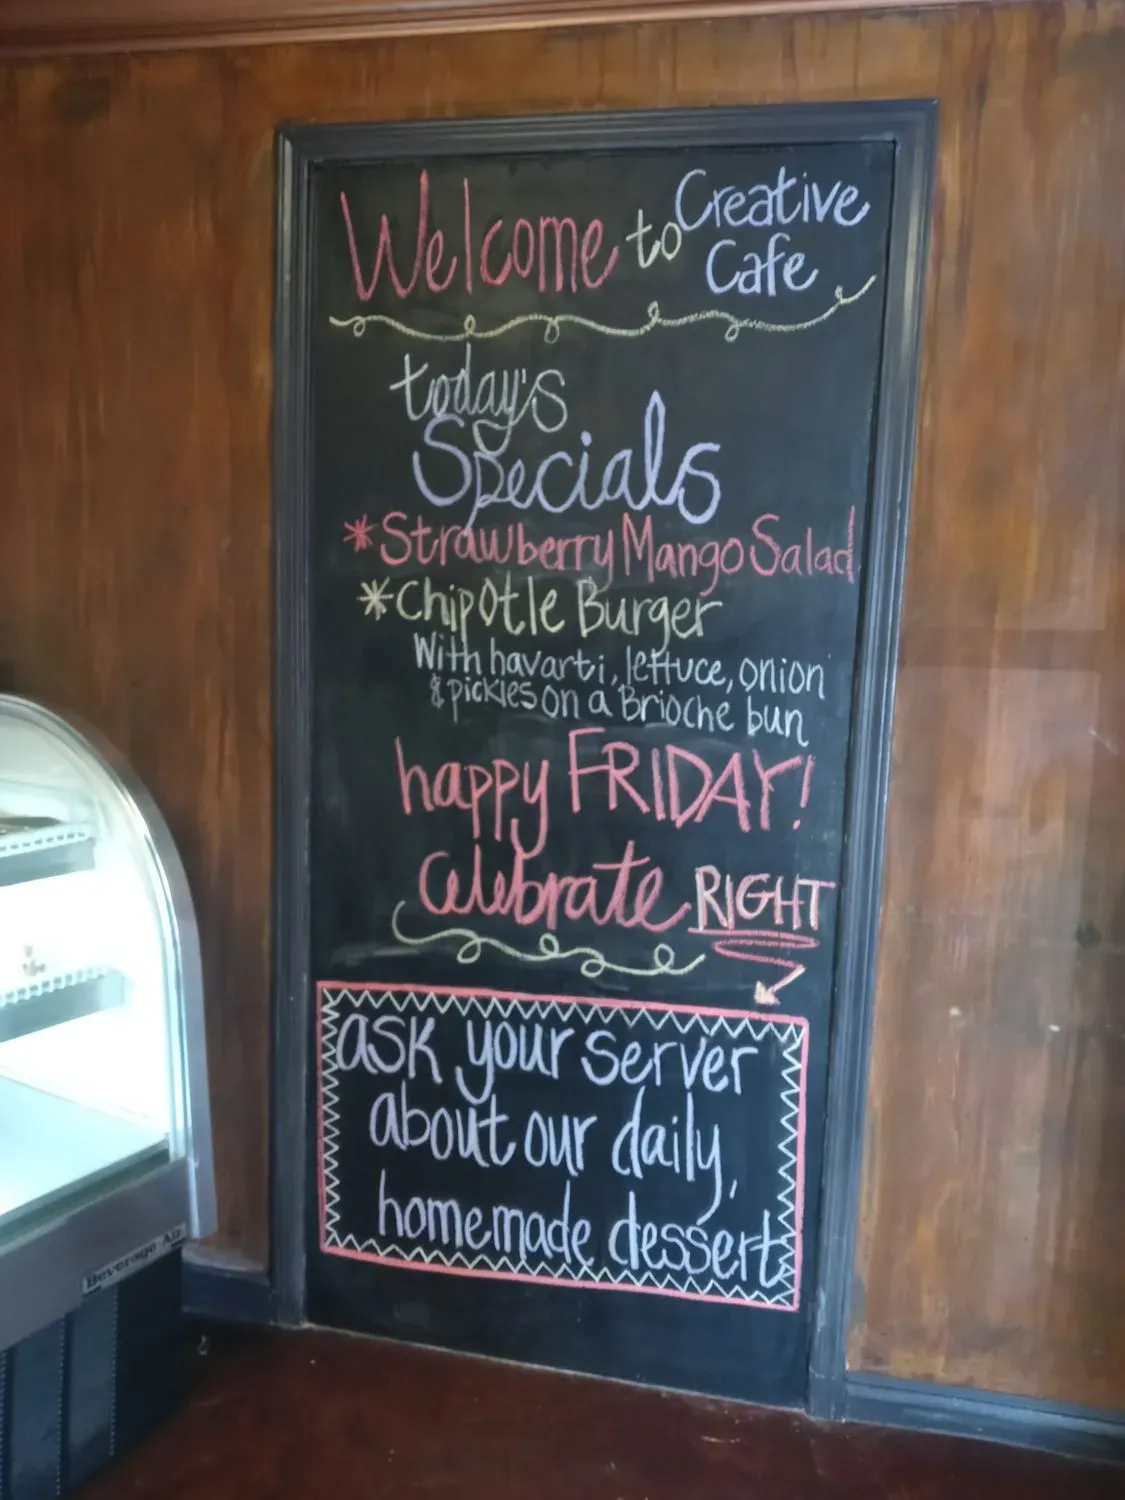 Welcome to Creative
Cafe
today's
Specials
*Strawberry Mango Salad
*Chipotle Burger
With havarti, lettuce, onion
& pickles on a Brioche bun
happy FRIDAY!
Celebrate RIGHT
ask your server
about our daily,
homemade dessert
Beverage Air